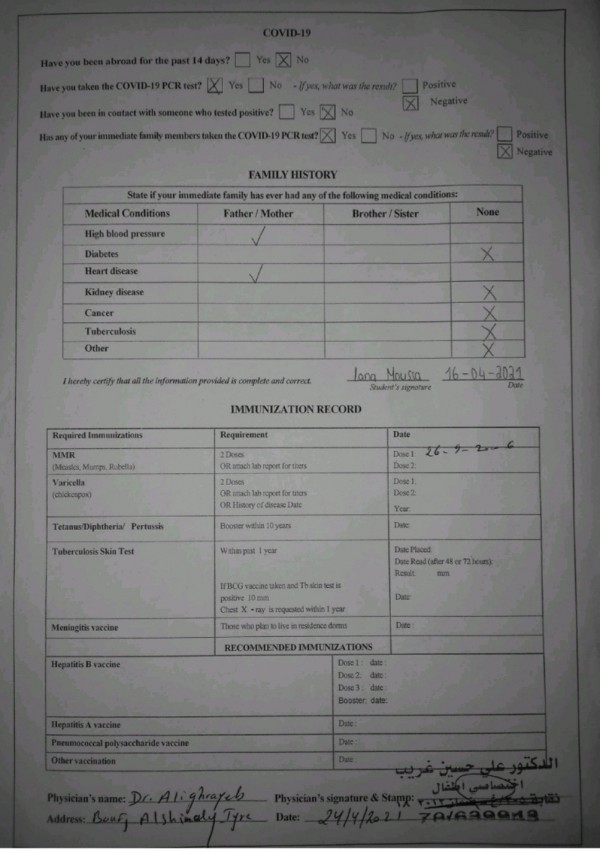 COVID-19
Have you been abroad for the past 14 days? Yes X No
Have you taken the COVID-19 PCR test? X Yes No - If yes, what was the result? Positive
X Negative
Have you been in contact with someone who tested positive? Yes X No
Has any of your immediate family members taken the COVID-19 PCR test? X Yes No - If yes, what was the result? Positive
X Negative
FAMILY HISTORY
State if your immediate family has ever had any of the following medical conditions:
Medical Conditions Father / Mother Brother / Sister None
High blood pressure ✓
Diabetes X
Heart disease ✓
Kidney disease X
Cancer X
Tuberculosis X
Other X
I hereby certify that all the information provided is complete and correct. Iana Moussa 16-04-2021
Student's signature Date
IMMUNIZATION RECORD
Required Immunizations Requirement Date
MMR 2 Doses Dose 1: 26-9-20
(Measles, Mumps, Rubella) OR attach lab report for titers Dose 2:
Varicella 2 Doses Dose 1:
(chickenpox) OR attach lab report for titers Dose 2:
OR History of disease Date Year:
Tetanus/Diphtheria/ Pertussis Booster within 10 years Date:
Tuberculosis Skin Test Within past 1 year Date Placed:
Date Read (after 48 or 72 hours):
Result: mm
If BCG vaccine taken and Tb skin test is
positive 10 mm Date:
Chest X - ray is requested within 1 year
Meningitis vaccine Those who plan to live in residence dorms Date :
RECOMMENDED IMMUNIZATIONS
Hepatitis B vaccine Dose 1 : date :
Dose 2: date :
Dose 3 : date :
Booster: date:
Hepatitis A vaccine Date :
Pneumococcal polysaccharide vaccine Date :
Other vaccination Date :
الدكتور علي حسين غريب
اختصاصي اطفال
Physician's name: Dr. Ali ghrayeb Physician's signature & Stamp:
Address: Bourj Alshimaly Tyre Date: 24/4/2021